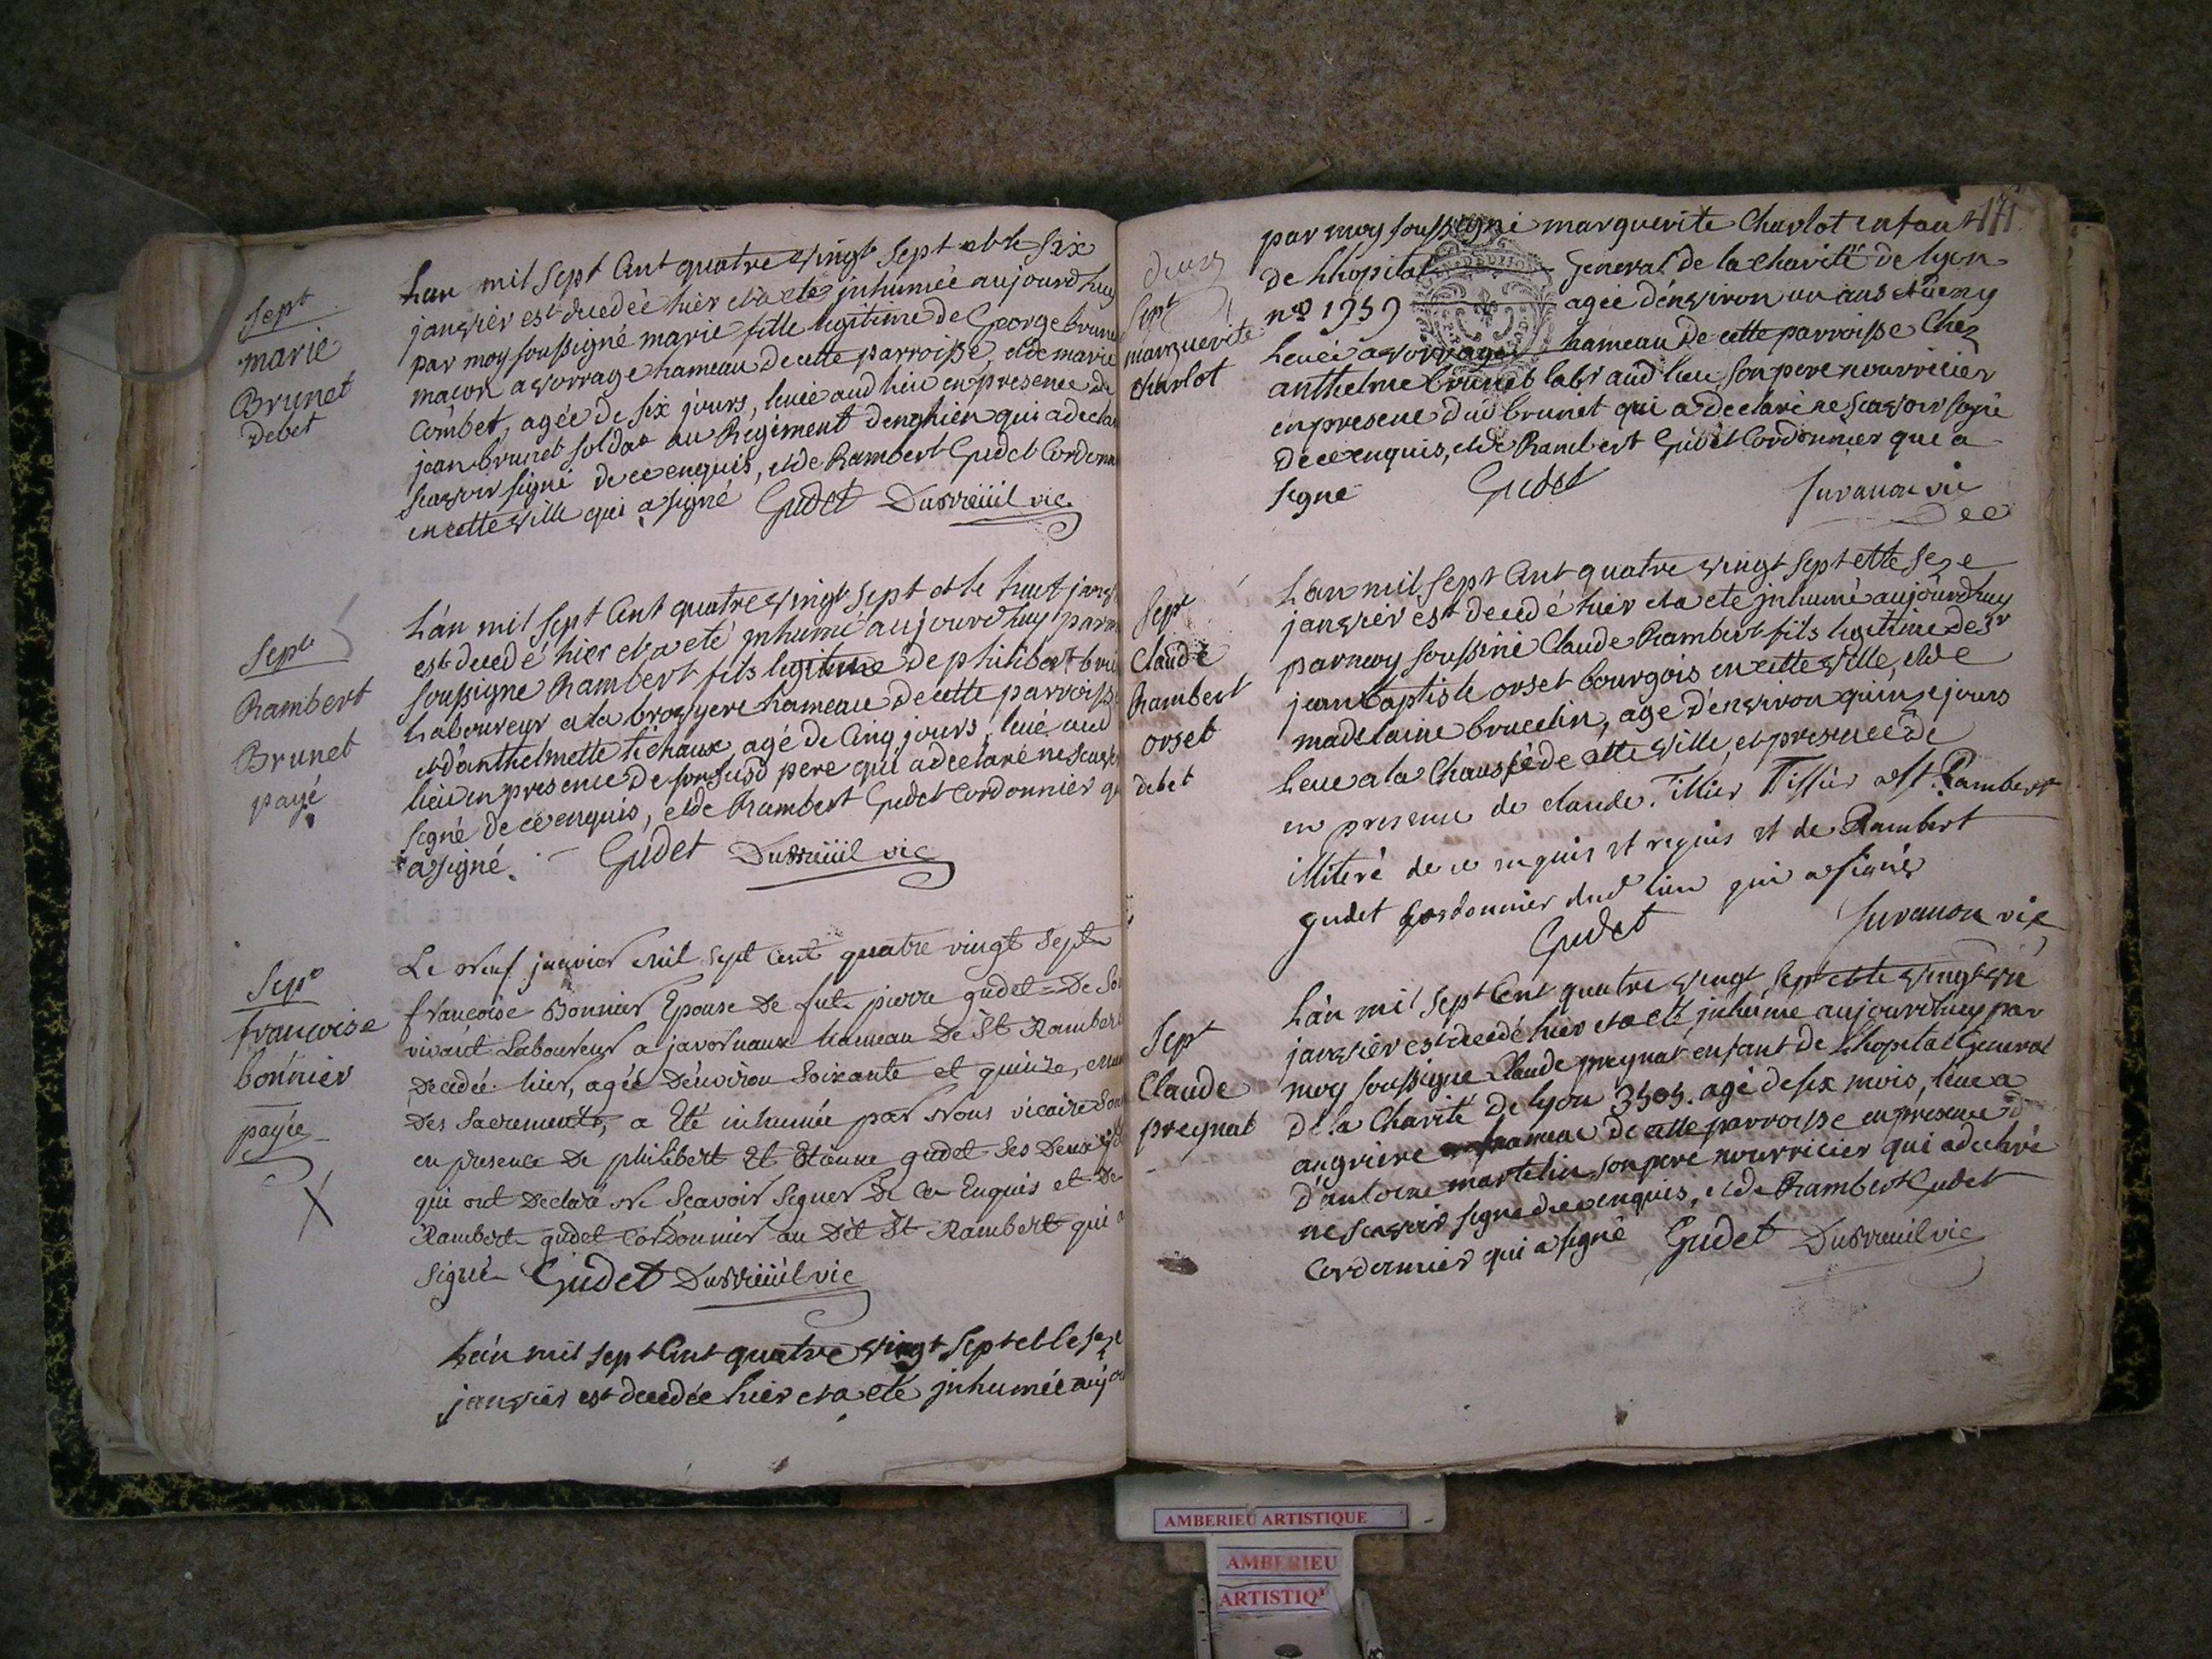 Sept
marie
Brunet
debet
Lan mil sept Cent quatre vingt sept et le six
janvier est decedée hier et a eté inhumée aujourdhuy
par moy soussigné marie fille legitime de George brunet
macon a vorrage hameau de cette parroisse, et de marie
Combet, agée de six jours, levée aud lieu en presence de
jean brunet soldat au Regiment denghien qui a decla
scavoir signé de ce enquis, et de Rambert Gudet Cordonn
en cette ville qui a signé Gudet Dubreüil vic
Sept
Rambert
Brunet
payé
Lán mil sept Cent quatre vingt sept et le huit janv
est decedé hier et a eté inhumé aujourdhuy par m
soussigne Rambert fils legitime de philibert bru
Laboureur a la brozyere hameau de cette parroisse
et dánthelmette , agé de Cinq jours, levé aud
lieu en presence de son susd pere qui a declaré ne scavoi
signé de ce enquis, et de Rambert Gudet cordonnier qu
a signé. Gudet Dubreüil vic
Sept
francoise
bonnier
payée
X
Le Neuf janvier Mil sept cent quatre vingt sept
francoise Bonnier Epouse De fut pierre gudet De So
vivant Laboureur a javornaux hameau De St Rambert
Decedée hier, agée D'environ soixante et quinze, mun
Des Sacrements, a Eté inhumée par Nous vicaire Sous
en presence De philibert Et Etienne gudet ses Deux
qui ont Declaré Ne Scavoir Signer De Ce Enquis et De
Rambert gudet Cordonnier au Dit St Rambert qui a
signé Gudet Dubreüil vic
Lán mil sept Cent quatre vingt sept et le seze
janvier est decedée hier et a eté inhumée aujou
171
Sept
marguerite
charlot
par moy soussigné marguerite Charlot enfant
de Lhopital General de la charité de lyon
no 1959 agée dénviron un ans
Levée a vorrages hameau de cette parroisse Chez
anthelme brunet labr aud lieu son pere nourricier
en presence dud brunet qui a declaré ne scavoir signé
de ce enquis, et de Rambert Gudet Cordonnier qui a
signé Gudet Juvanon vic
Sept
Claude
Rambert
orset
debet
Lan mil sept Cent quatre vingt sept et le seze
janvier est decedé hier et a eté inhumé aujourdhuy
par moy soussiné Claude Rambert fils legitime de sr
jean baptiste orset bourgois en cette ville, et de
madelaine brucelin, agé dénviron quinze jours
Levé a la Chaussée de cette ville, et presence de
en presence de claude. Tissier a St Rambert
illiteré de ce enquis et requis et de Rambert
gudet Cordonnier dud lieu qui a signé
Gudet Juvanon vic
Sept
Claude
preynat
Lán mil sept Cent quatre vingt sept et le vingt
janvier est decedé hier et a eté inhumé aujourdhuy par
moy soussigne Claude preynat enfant de Lhopital General
de la Charité de lyon 3505. agé de six mois, levé a
angrieres hameau de cette parroisse en presence
d'antoine martelin son pere nourricier qui a declaré
ne scavoir signé de ce enquis, et de Rambert Gudet
Cordonnier qui a signé Gudet Dubreuil vic
AMBERIEU ARTISTIQUE
AMBERIEU
ARTISTIQ